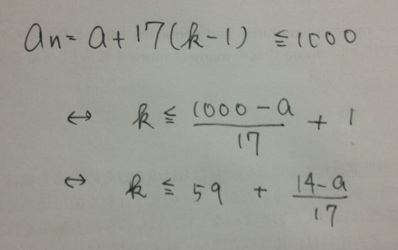 an = a + 17(k-1) ≦ 1000
⇔ k ≦ (1000-a)/17 + 1
⇔ k ≦ 59 + (14-a)/17